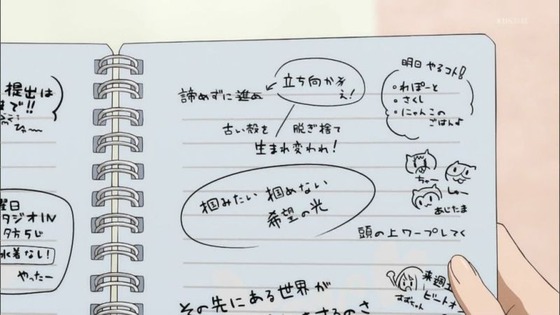 提出は
まで!!
曜日
タジオIN
夕方5じ
水着なし!
やったー
諦めずに進め
立ち向かえ!
古い殻を 脱ぎ捨て
生まれ変われ!
掴みたい 掴めない
希望の光
明日 やるコト!
・れぽーと
・さくし
・にゃんこの
ごはんよ
ちゃー
しゅー
あじたま
頭の上ワープしてく
その先にある世界が
するのさ
来週
ビートオ
すずちゃん